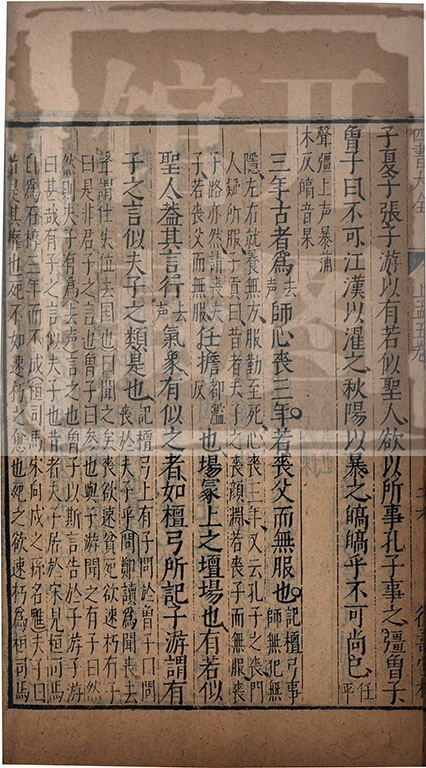 四書大全 上孟五卷
子夏子張子游以有若似聖人欲以所事孔子事之彊曾子
曾子曰不可江漢以濯之秋陽以暴之皜皜乎不可尚已任平
聲彊上声暴蒲
木反皜音果
三年古者為去声師心喪三年若喪父而無服也記檀弓事師無犯無
隱左右就養無方服勤至死心喪三年又云孔子之喪門
人疑所服子貢曰昔者夫子之喪顏淵若喪子而無服喪
子路亦然請喪夫子若喪父而無服任擔都濫反也場冢上之壇場也有若似
聖人蓋其言行去声氣象有似之者如檀弓所記子游謂有
子之言似夫子之類是也記檀弓上有子問於曾子曰問喪於夫子乎問鄭讀為聞喪去
聲謂仕失位去国也曰聞之矣喪欲速貧死欲速朽有子
曰是非君子之言也曾子曰参也與子游聞之有子曰然
然則夫子有為去声言之也曾子以斯言告於子游子游
曰甚哉有子之言似夫子也昔者夫子居於宋見桓司馬
自為石槨三年而不成桓司馬宋向戌之孫名魋夫子曰
若是其靡也死不如速朽之愈也死之欲速朽為桓司馬